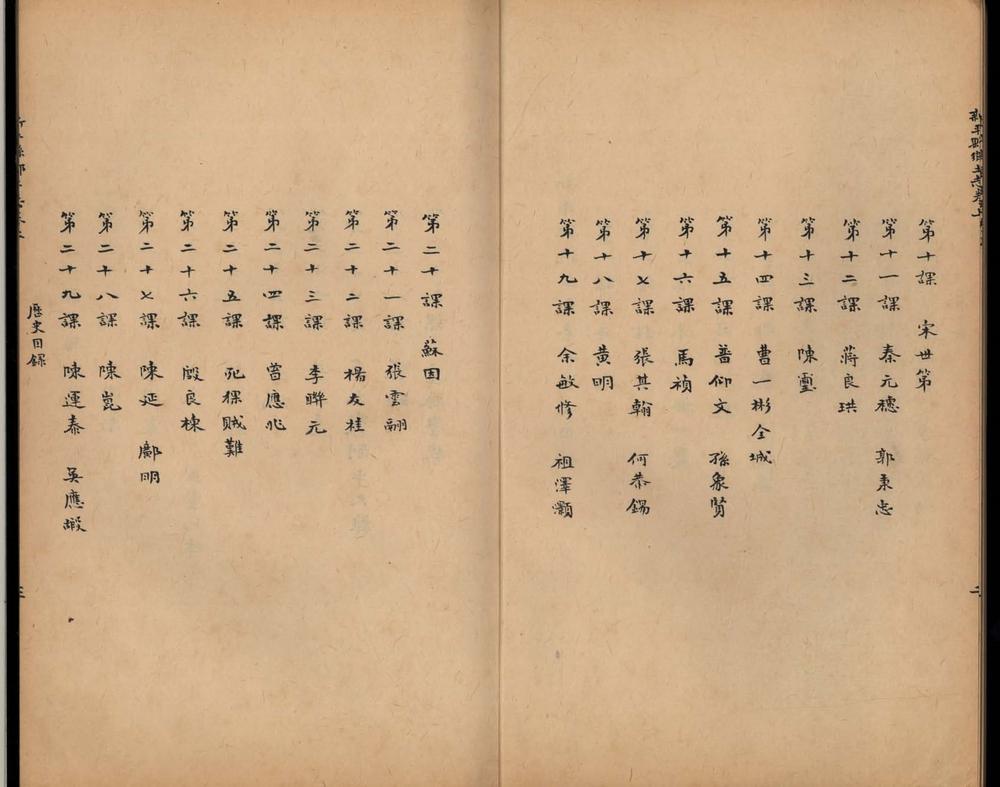 第十課　宋世第
第十一課　秦元穗　郭秉忠
第十二課　蔣良珙
第十三課　陳璽
第十四課　曹一彬全城
第十五課　普仰文　孫象賢
第十六課　馬禎
第十七課　張其翰　何恭錫
第十八課　黄明
第十九課　余敏修　祖澤灝
二
第二十課　蘇固
第二十一課　張雲翮
第二十二課　楊友桂
第二十三課　李聯元
第二十四課　當應兆
第二十五課　死猓賊難
第二十六課　殷良棟
第二十七課　陳延　鄺明
第二十八課　陳崑
第二十九課　陳運泰　吳應嘏
歷史目錄
三